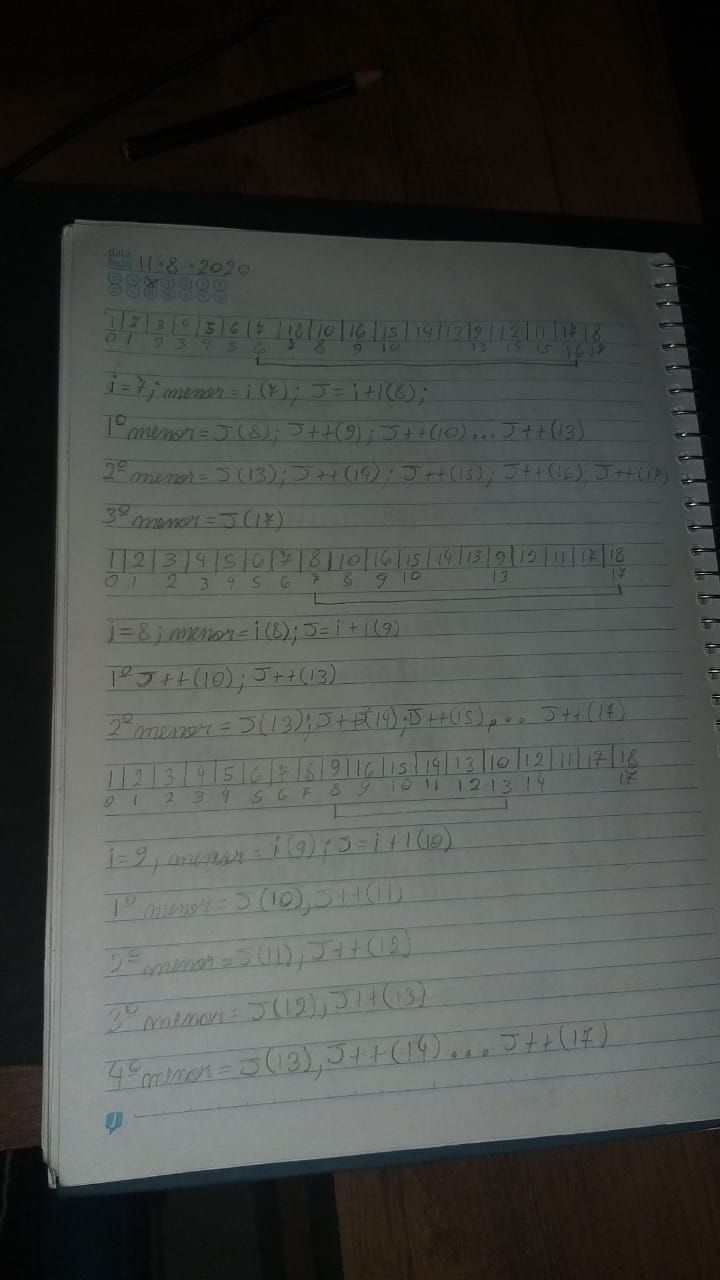 data
fecha 11.8.2020
1 | 2 | 3 | 4 | 5 | 6 | 7 | 18 | 10 | 16 | 15 | 14 | 13 | 9 | 12 | 11 | 17 | 8
0 1 2 3 4 5 6 7 8 9 10 13 14 15 16 17
i=7; menor=i(7); J=i+1(8);
1º menor=J(8); J++(9); J++(10)... J++(13)
2º menor=J(13); J++(14); J++(15); J++(16); J++(17)
3º menor=J(17)
1 | 2 | 3 | 4 | 5 | 6 | 7 | 8 | 10 | 16 | 15 | 14 | 13 | 9 | 12 | 11 | 17 | 18
0 1 2 3 4 5 6 7 8 9 10 13 17
i=8; menor=i(8); J=i+1(9)
1º J++(10); J++(13)
2º menor=J(13); J++(14); J++(15), ... J++(17)
1 | 2 | 3 | 4 | 5 | 6 | 7 | 8 | 9 | 16 | 15 | 14 | 13 | 10 | 12 | 11 | 17 | 18
0 1 2 3 4 5 6 7 8 9 10 11 12 13 14 17
i=9, menor=i(9); J=i+1(10)
1º menor=J(10), J++(11)
2º menor=J(11), J++(12)
3º menor=J(12), J++(13)
4º menor=J(13), J++(14)... J++(17)